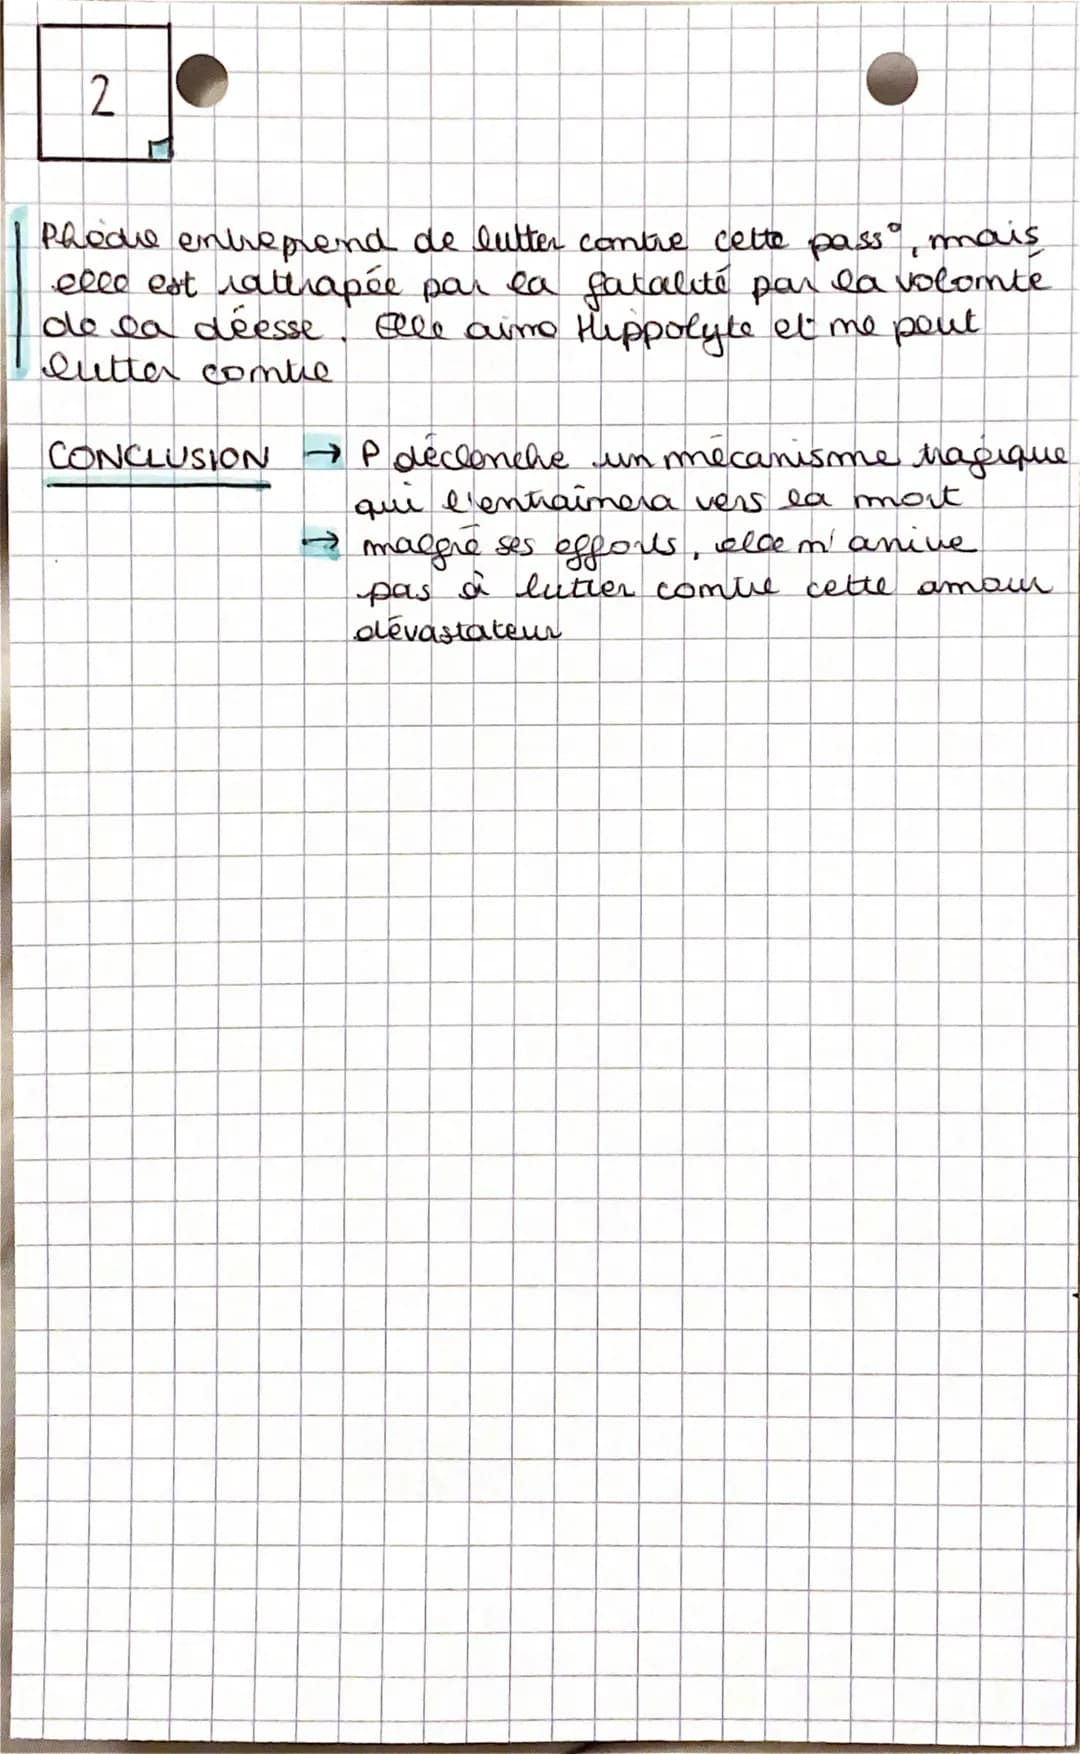 2
Phèdre entreprend de lutter contre cette pass°, mais
elle est rattrapée par la fatalité par la volonté
de la déesse. Elle aime Hippolyte et ne peut
lutter contre
CONCLUSION → P déclenche un mécanisme tragique
qui l'entraînera vers la mort
→ malgré ses efforts, elle n'arrive
pas à lutter contre cette amour
dévastateur